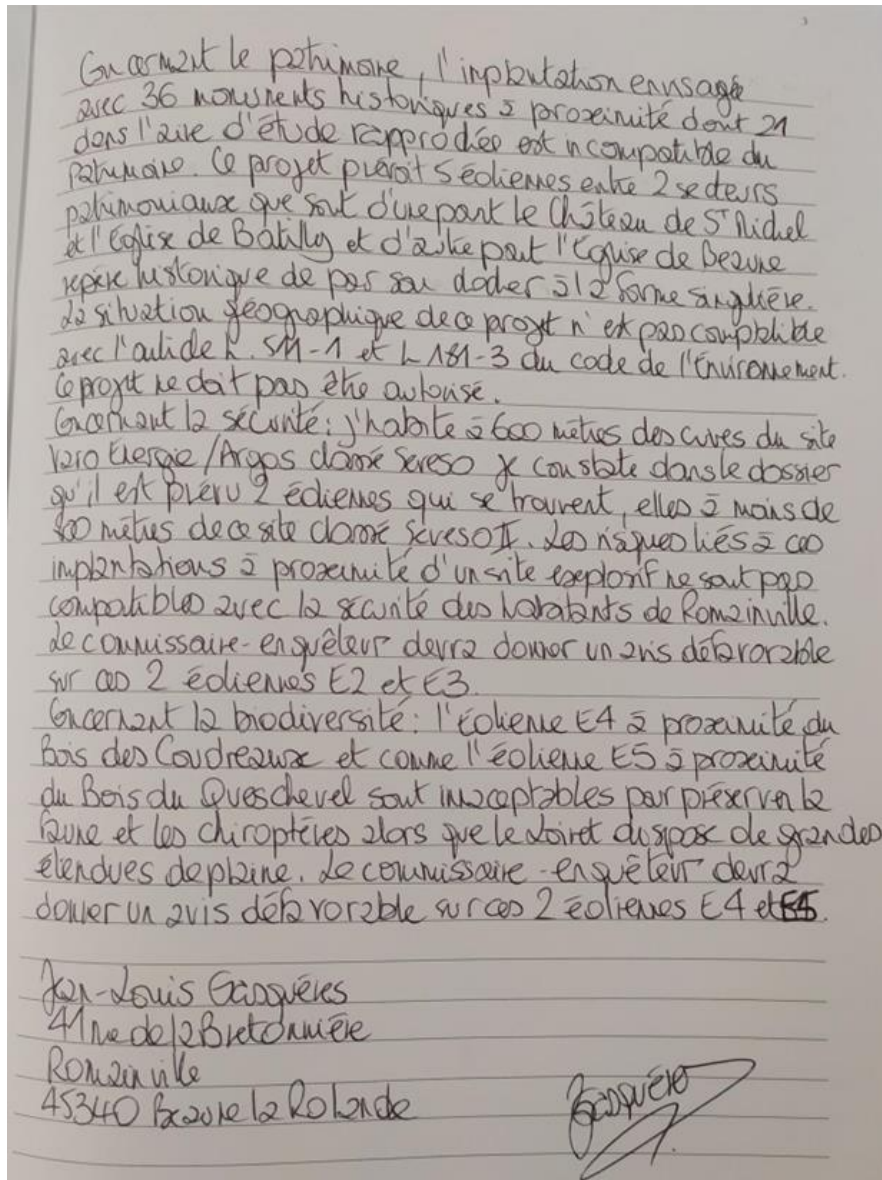 Concernant le patrimoine, l'implantation envisagée
avec 36 monuments historiques à proximité dont 21
dans l'aire d'étude rapprochée est incompatible du
Patrimoine. Ce projet prévoit 5 éoliennes entre 2 secteurs
patrimoniaux que sont d'une part le Château de St Michel
et l'Eglise de Batilly et d'autre part l'Eglise de Beaune
repère historique de par son clocher à la forme singulière.
La situation géographique de ce projet n'est pas compatible
avec l'article L. 511-1 et L 181-3 du code de l'Environnement.
Ce projet ne doit pas être autorisé.
Concernant la sécurité: j'habite à 600 mètres des cuves du site
Varo Energie/Argos classé Seveso je constate dans le dossier
qu'il est prévu 2 éoliennes qui se trouvent, elles à moins de
mètres de ce site classé Seveso II. Les risques liés à ces
implantations à proximité d'un site explosif ne sont pas
compatibles avec la sécurité des habitants de Romainville.
Le commissaire-enquêteur devra donner un avis défavorable
sur ces 2 éoliennes E2 et E3.
Concernant la biodiversité: l'éolienne E4 à proximité du
Bois des Coudreaux et comme l'éolienne E5 à proximité
du Bois du Queschevel sont inacceptables pour préserver la
faune et les chiroptères alors que le Loiret dispose de grandes
étendues de plaine. Le commissaire-enquêteur devra
donner un avis défavorable sur ces 2 éoliennes E4 et E5.
Jean-Louis Gasquères
41 rue de la Bretonnière
Romainville
45340 Beaune la Rolande
Gasquères